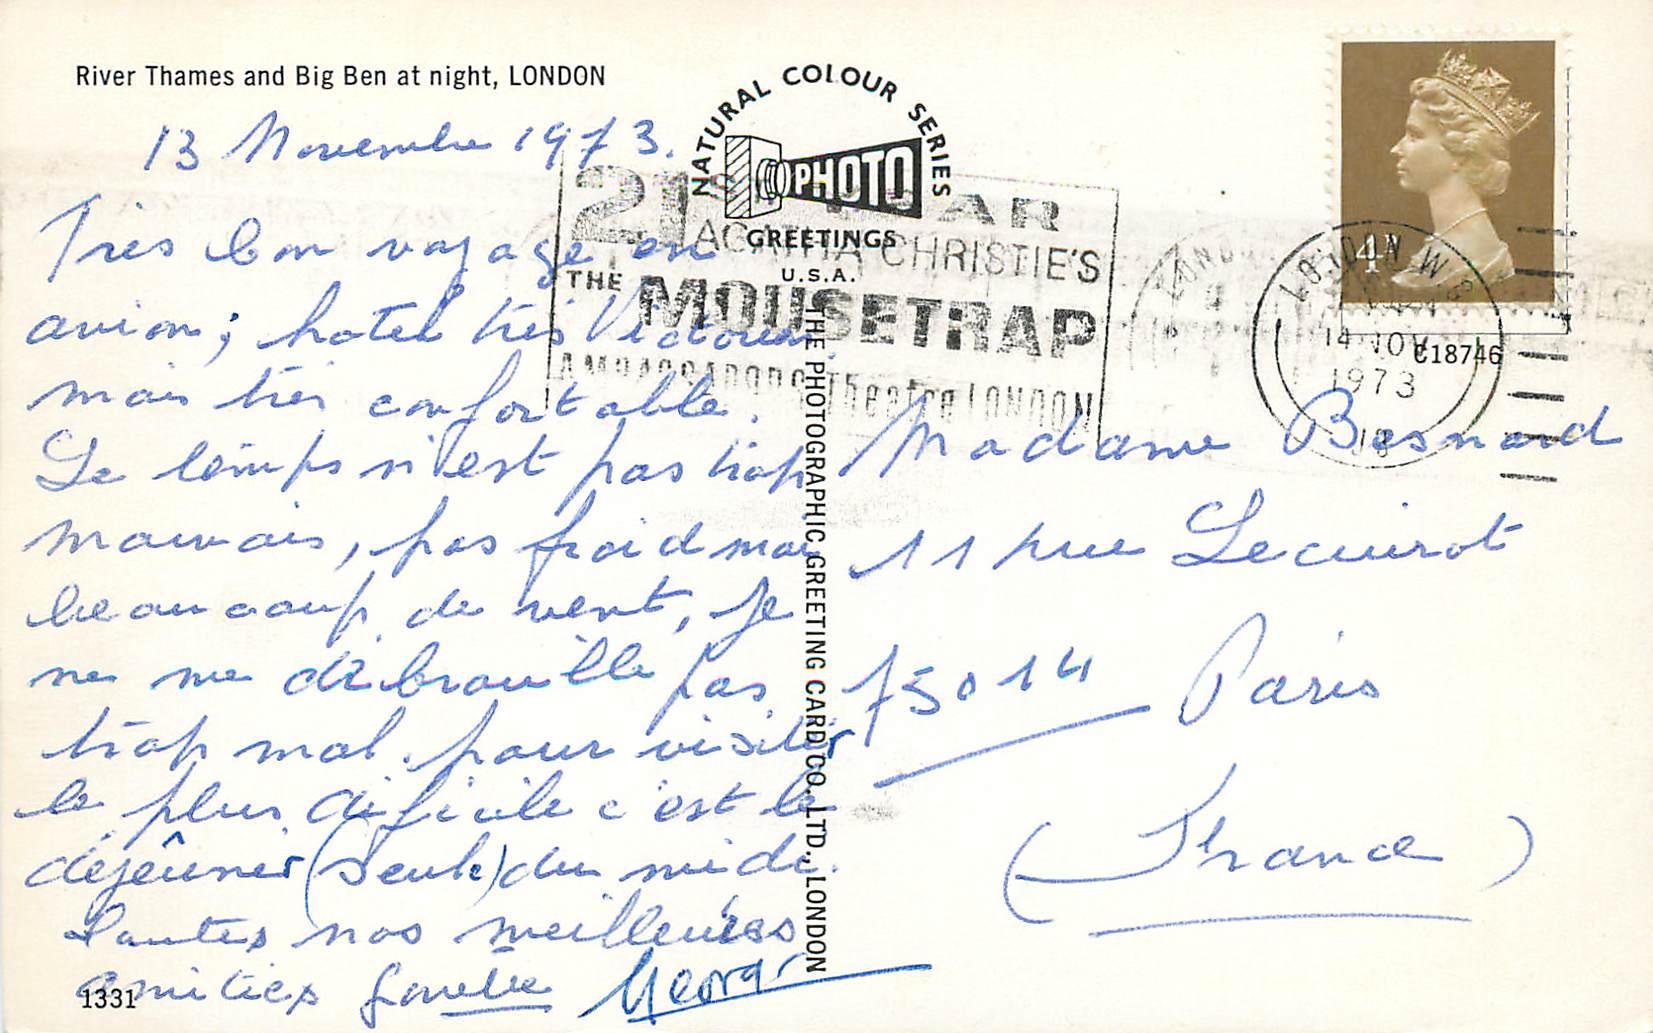 River Thames and Big Ben at night, LONDON
13 Novembre 1973.
Très bon voyage en
avion; hotel très Victorien
mais très confortable.
Le temps n'est pas trop
mauvais, pas froid mais
beaucoup de vent, je
ne me débrouille pas
trop mal. pour visiter
le plus dificile c'est le
déjeûner (seule) du midi.
Toutes nos meilleures
amitiés
1331
NATURAL COLOUR SERIES
PHOTO
GREETINGS
U.S.A.
THE PHOTOGRAPHIC GREETING CARD CO. LTD., LONDON
21 YEAR
AGATHA CHRISTIE'S
THE MOUSETRAP
AMBASSADORS Theatre LONDON
4
LONDON W.
14 NOV
1973
C18746
Madame Besnard
11 rue Lecuirot
75014 Paris
(France)